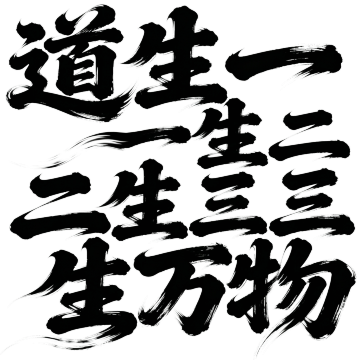 道生一
一生二
二生三三
生万物